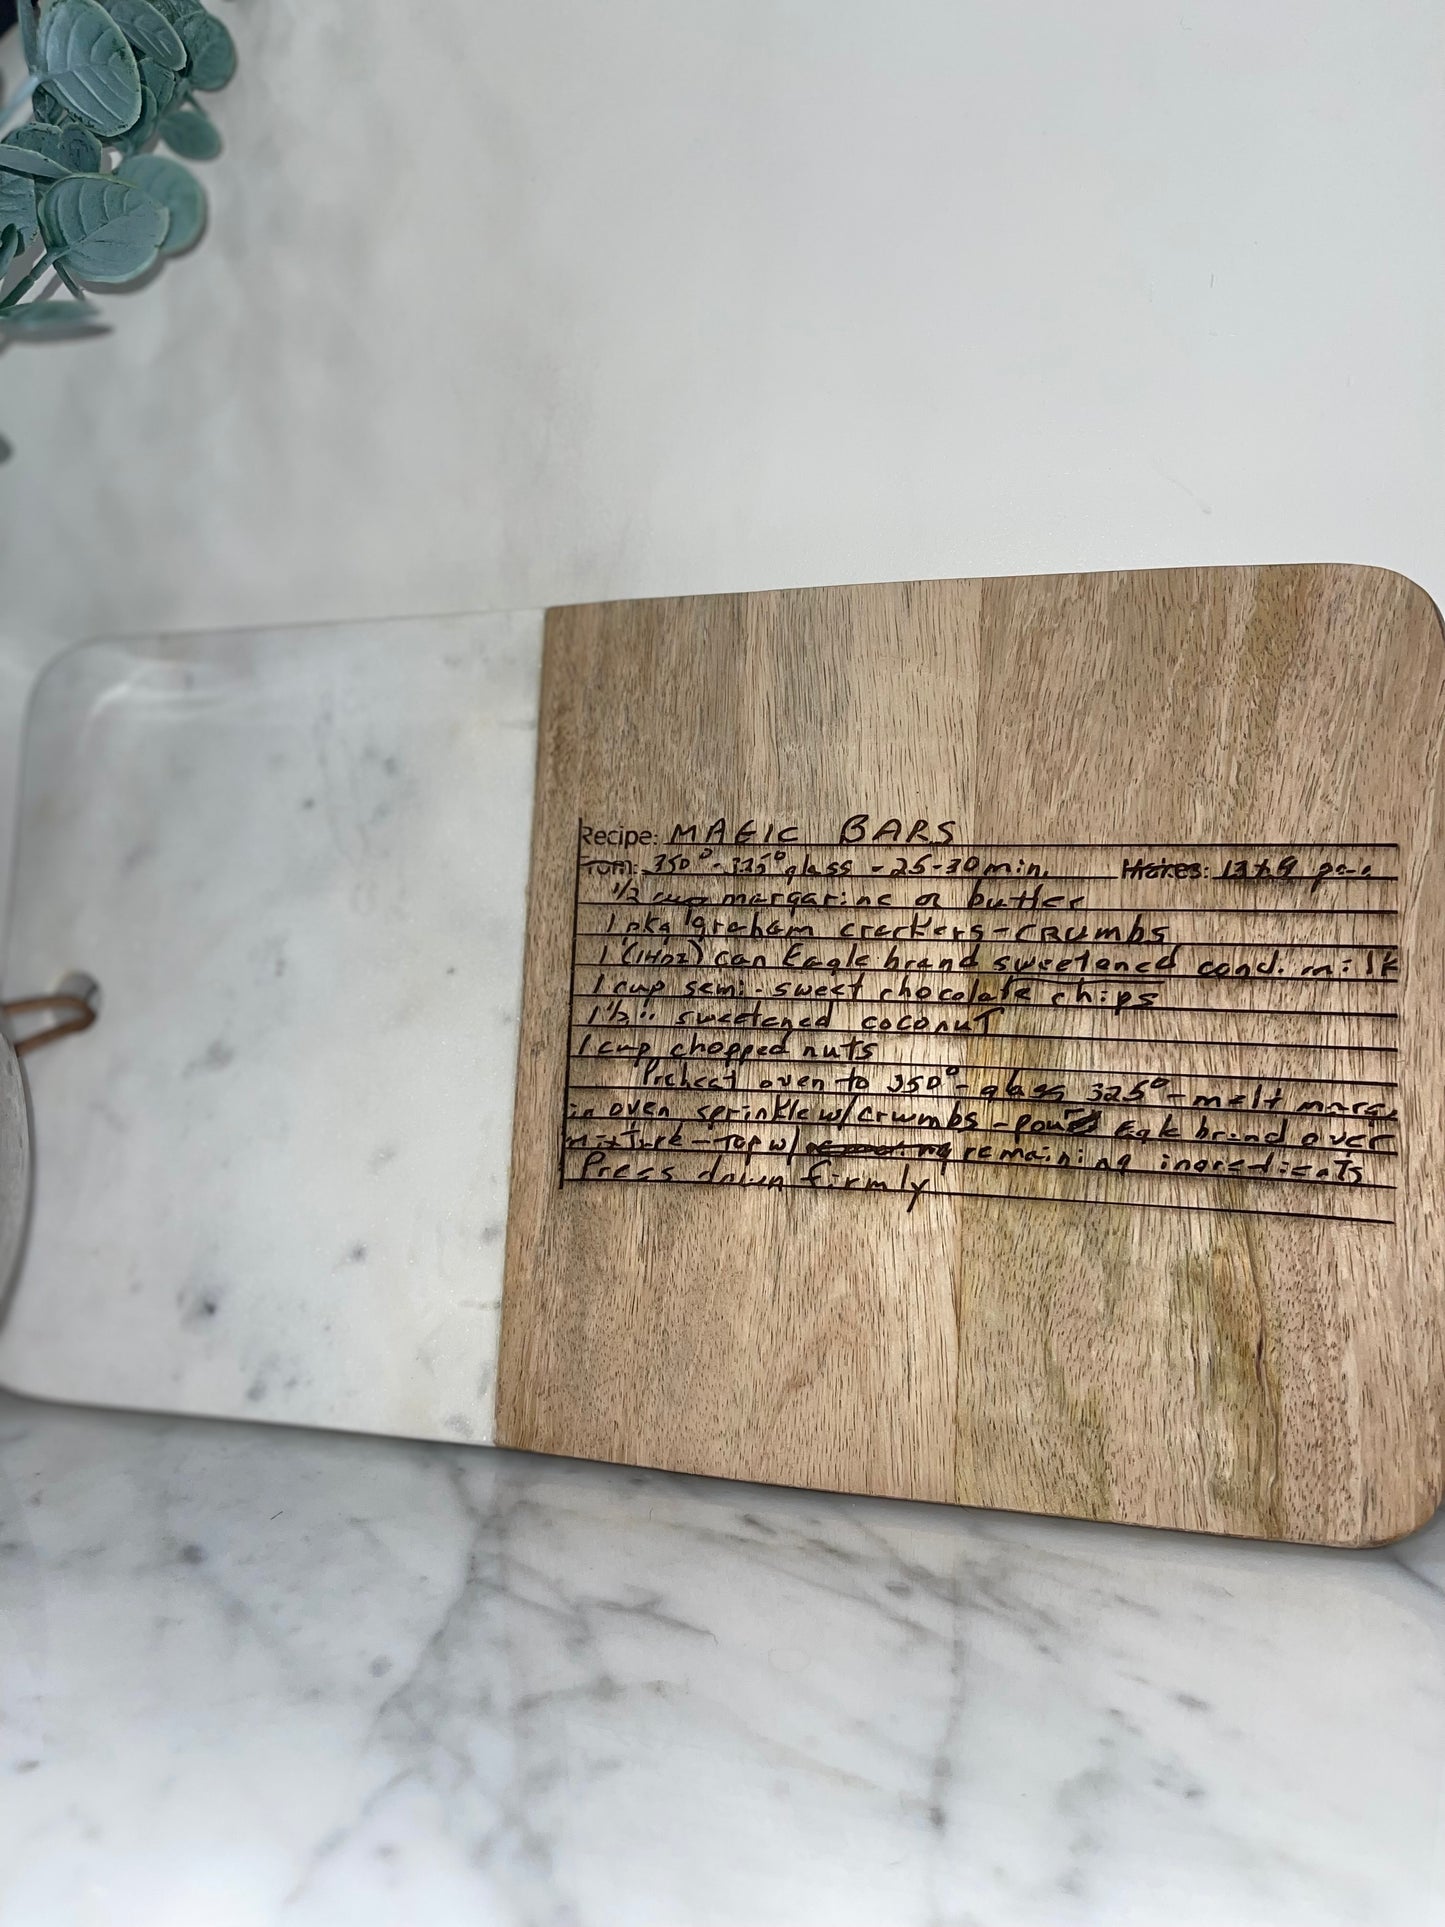 Recipe: MAGIC BARS
From: 350° - 325° glass - 25-30 min. Makes: 13x9 pan
1/2 cup margarine or butter
1 pkg graham crackers - CRUMbS
1 (14oz) can Eagle brand sweetened cond. milk
1 cup semi-sweet chocolate chips
1 1/2 " sweetened coconut
1 cup chopped nuts
Preheat oven to 350° - glass 325° - melt marg.
in oven sprinkle w/ crumbs - pour Eagle brand over
mixture - Top w/ remaining ingredients
Press down firmly